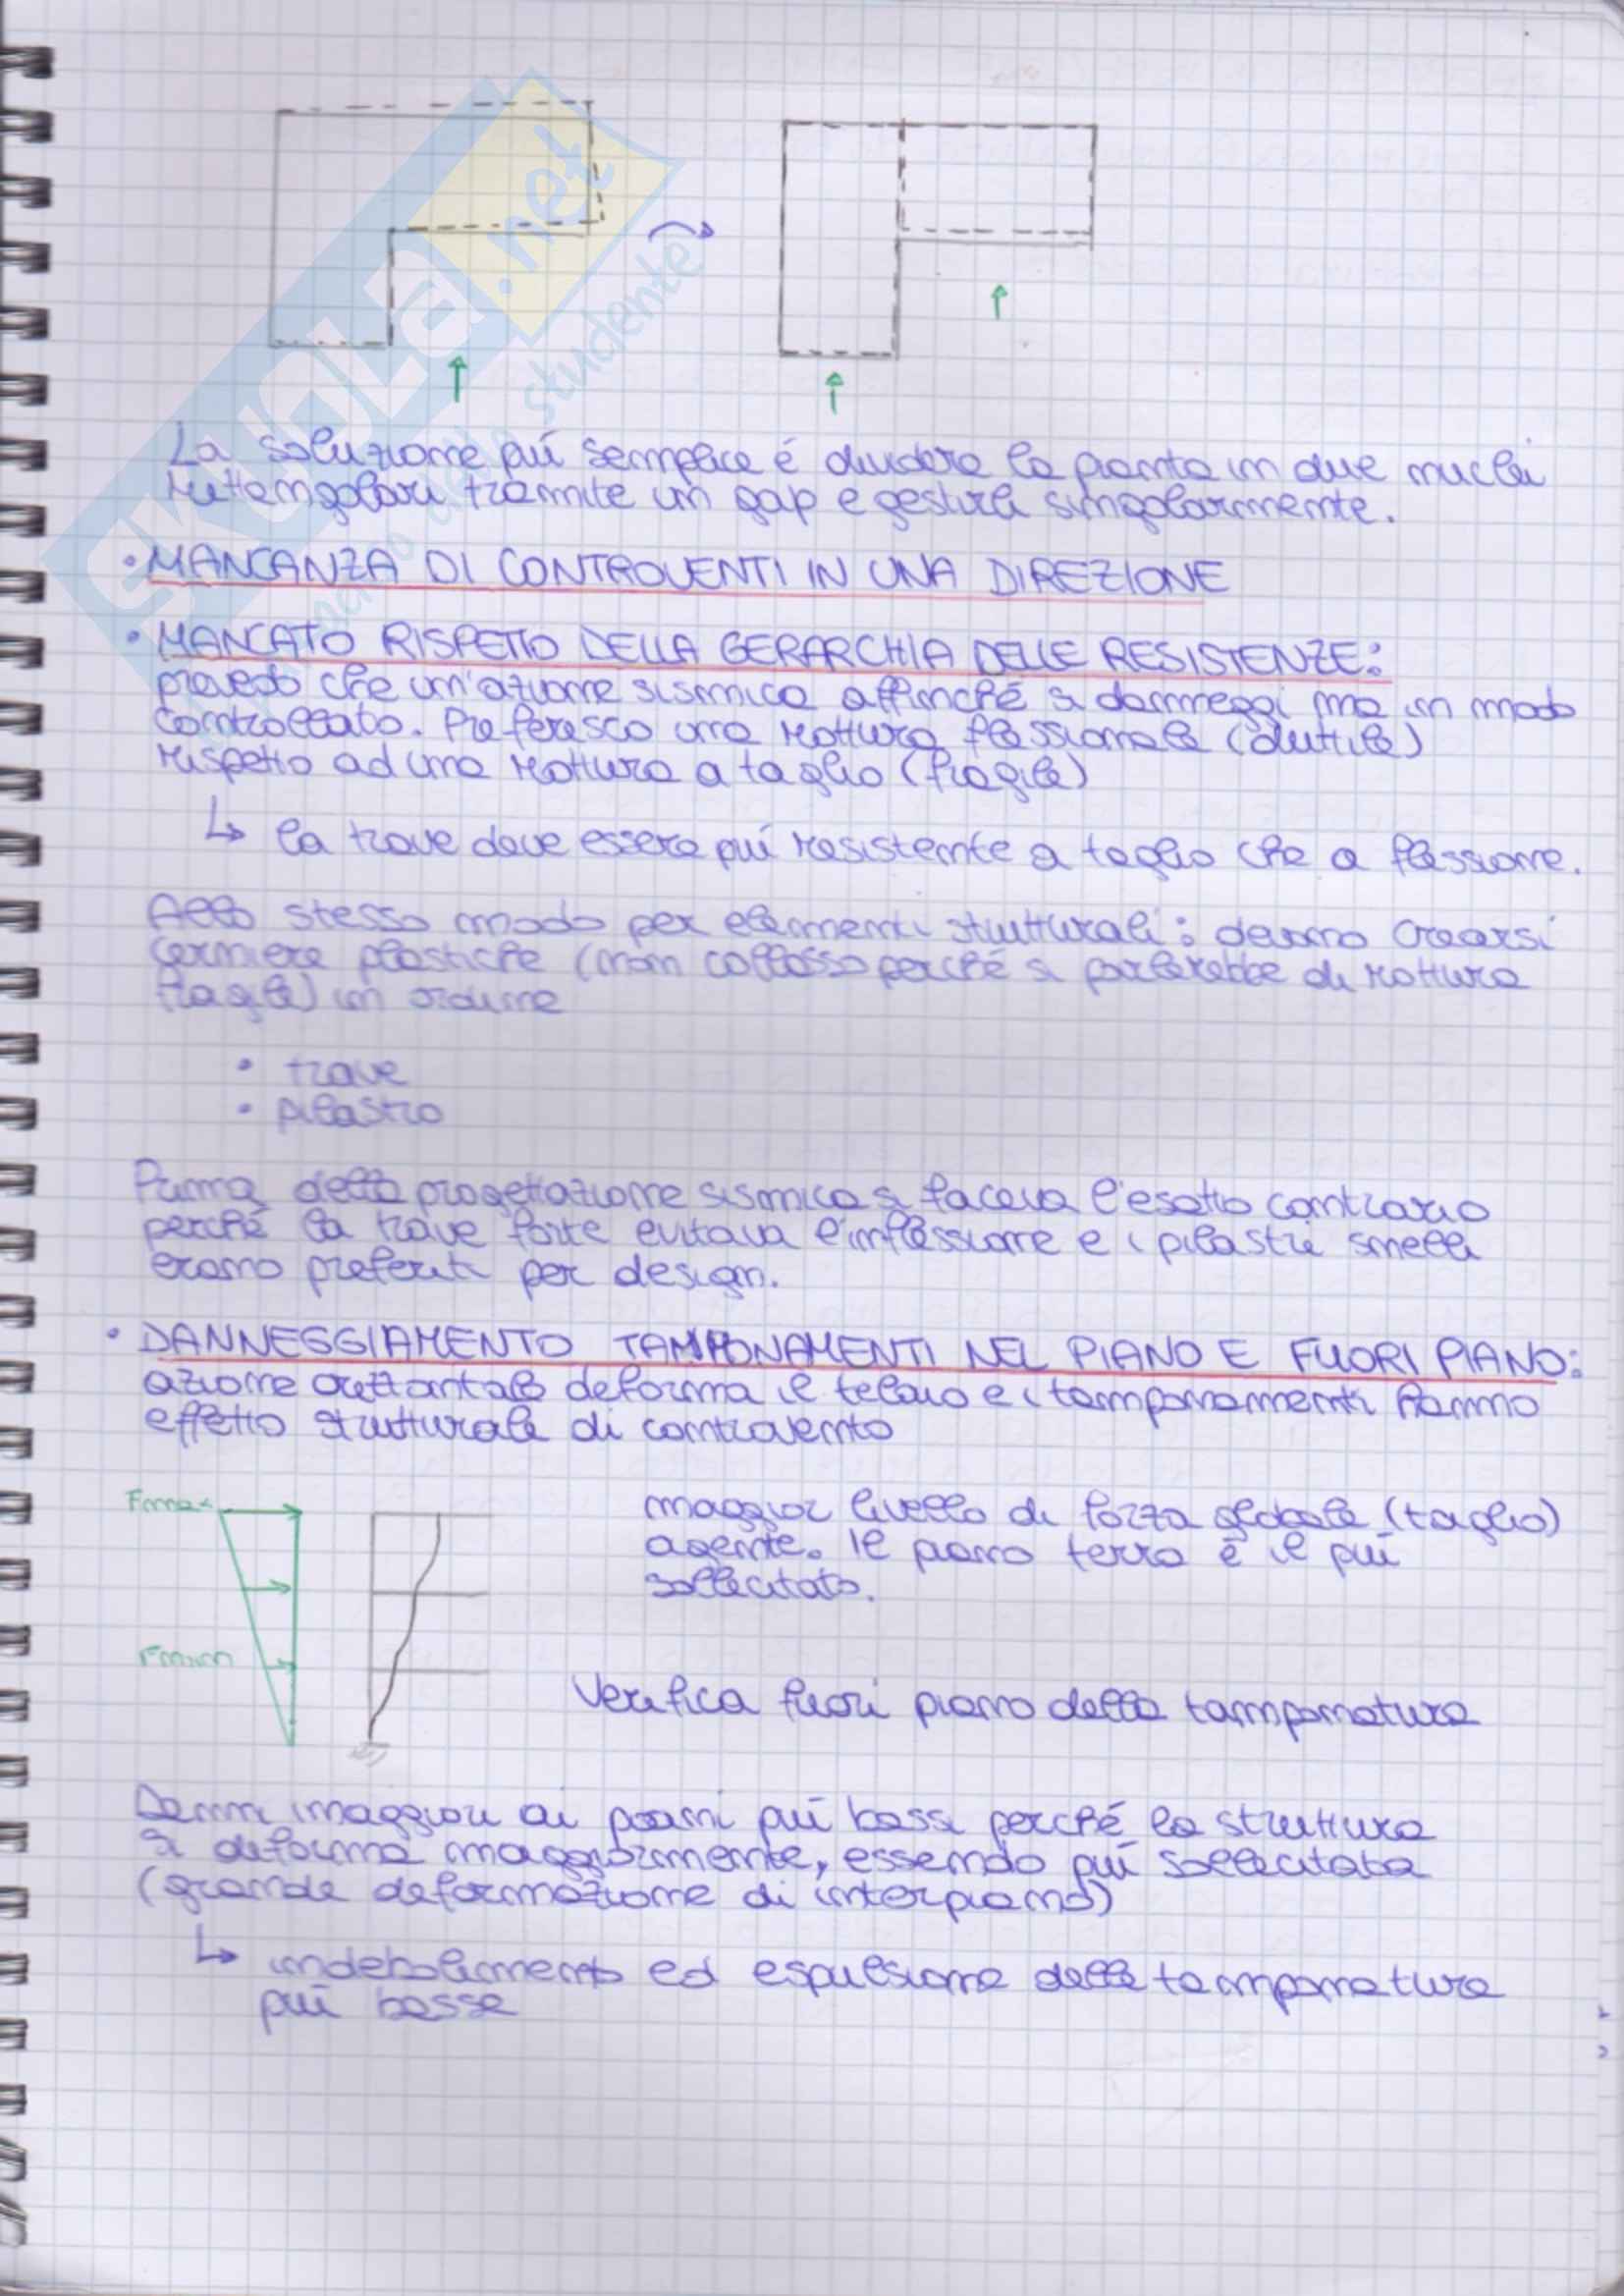 SKUOLA.net
studente
La soluzione piú semplice é dividere la pianta in due nuclei
rettangolari tramite un gap e gestirli singolarmente.
• MANCANZA DI CONTROVENTI IN UNA DIREZIONE
• MANCATO RISPETTO DELLA GERARCHIA DELLE RESISTENZE:
prevedo che un'azione sismica affinché si danneggi ma in modo
controllato. Preferisco una rottura flessionale (duttile)
rispetto ad una rottura a taglio (fragile)
↳ la trave deve essere piú resistente a taglio che a flessione.
Allo stesso modo per elementi strutturali: devono crearsi
cerniere plastiche (non collasso perché si parlerebbe di rottura
fragile) in ordine
• trave
• pilastro
Prima della progettazione sismica si faceva l'esatto contrario
perché la trave forte evitava l'inflessione e i pilastri snelli
erano preferiti per design.
• DANNEGGIAMENTO TAMPONAMENTI NEL PIANO E FUORI PIANO:
azione orizzontale deforma il telaio e i tamponamenti hanno
effetto strutturale di controvento
Fmax
maggior livello di forza globale (taglio)
agente. Il piano terra è il piú
sollecitato.
Fmin
Verifica fuori piano della tamponatura
Danni maggiori ai piani piú bassi perché la struttura
si deforma maggiormente, essendo piú sollecitata
(grande deformazione di interpiano)
↳ indebolimento ed espulsione delle tamponature
piú basse